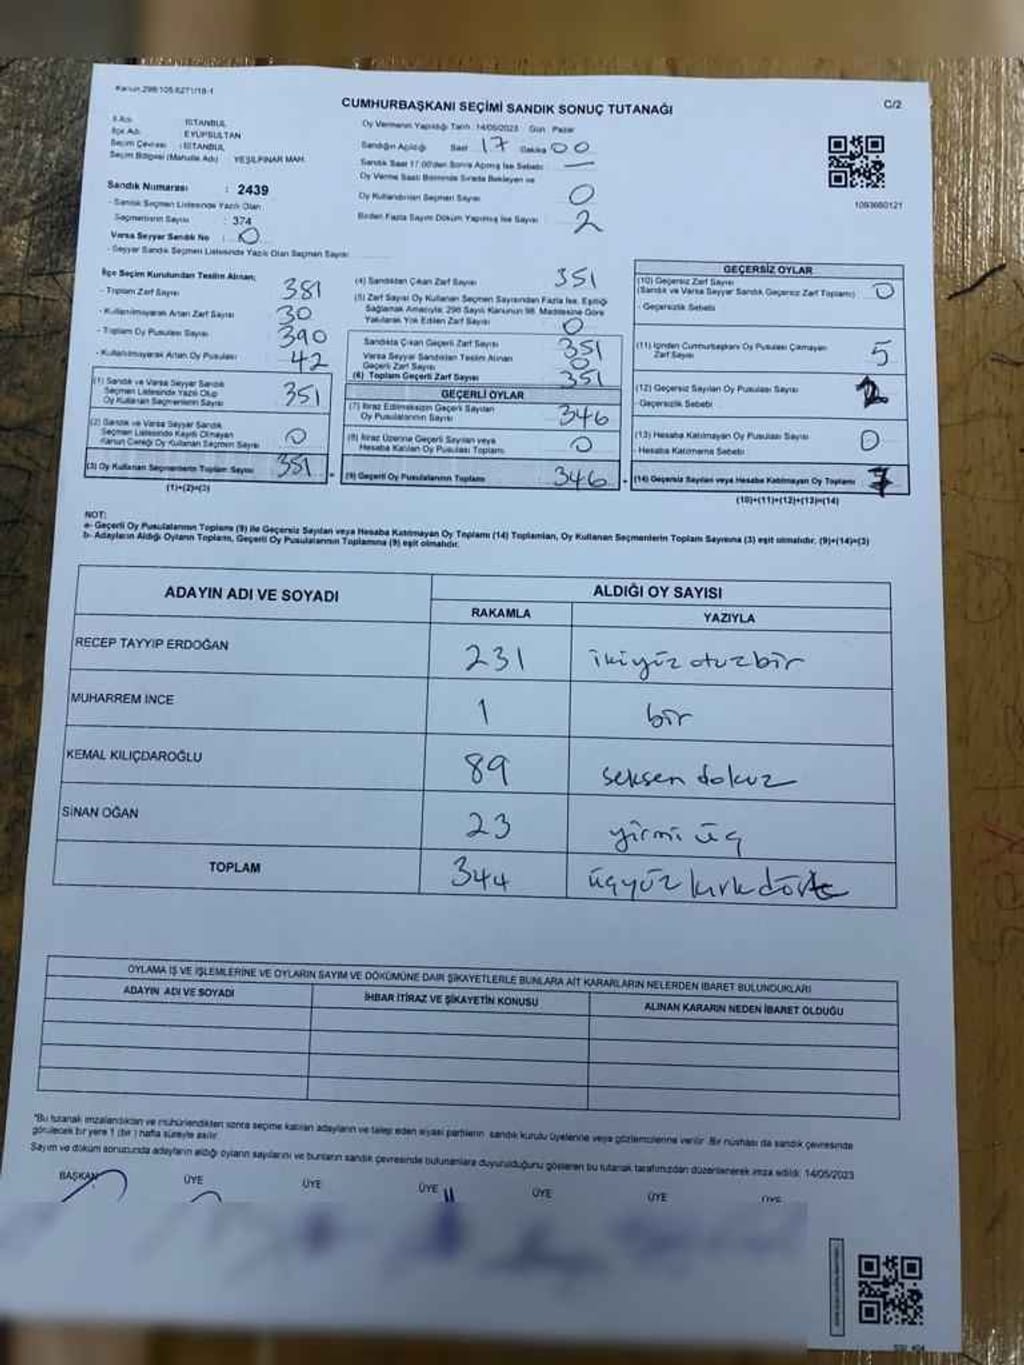 Kanun.298/105.6271/18-1
CUMHURBAŞKANI SEÇİMİ SANDIK SONUÇ TUTANAĞI
C/2
İl Adı : İSTANBUL
İlçe Adı : EYÜPSULTAN
Seçim Çevresi : İSTANBUL
Seçim Bölgesi (Mahalle Adı) : YEŞİLPINAR MAH.
Sandık Numarası : 2439
- Sandık Seçmen Listesinde Yazılı Olan
Seçmenlerin Sayısı : 374
Varsa Seyyar Sandık No : 0
- Seyyar Sandık Seçmen Listesinde Yazılı Olan Seçmen Sayısı :
Oy Vermenin Yapıldığı Tarih : 14/05/2023 Gün : Pazar
Sandığın Açıldığı Saat 17 Dakika 00
Sandık Saat 17.00'den Sonra Açılmış İse Sebebi : —
Oy Verme Saati Bitiminde Sırada Bekleyen ve
Oy Kullandırılan Seçmen Sayısı 0
Birden Fazla Sayım Döküm Yapılmış İse Sayısı : 2
1093660121
İlçe Seçim Kurulundan Teslim Alınan;
- Toplam Zarf Sayısı 381
- Kullanılmayarak Artan Zarf Sayısı 30
- Toplam Oy Pusulası Sayısı 390
- Kullanılmayarak Artan Oy Pusulası 42
(1) Sandık ve Varsa Seyyar Sandık
Seçmen Listesinde Yazılı Olup
Oy Kullanan Seçmenlerin Sayısı 351
(2) Sandık ve Varsa Seyyar Sandık
Seçmen Listesinde Kayıtlı Olmayan
Kanun Gereği Oy Kullanan Seçmen Sayısı 0
(3) Oy Kullanan Seçmenlerin Toplam Sayısı 351
(1)+(2)=(3)
(4) Sandıktan Çıkan Zarf Sayısı 351
(5) Zarf Sayısı Oy Kullanan Seçmen Sayısından Fazla İse, Eşitliği
Sağlamak Amacıyla; 298 Sayılı Kanunun 98. Maddesine Göre
Yakılarak Yok Edilen Zarf Sayısı 0
Sandıkta Çıkan Geçerli Zarf Sayısı 351
Varsa Seyyar Sandıktan Teslim Alınan
Geçerli Zarf Sayısı 0
(6) Toplam Geçerli Zarf Sayısı 351
GEÇERLİ OYLAR
(7) İtiraz Edilmeksizin Geçerli Sayılan
Oy Pusulalarının Sayısı 346
(8) İtiraz Üzerine Geçerli Sayılan veya
Hesaba Katılan Oy Pusulası Toplamı 0
(9) Geçerli Oy Pusulalarının Toplamı 346
GEÇERSİZ OYLAR
(10) Geçersiz Zarf Sayısı
(Sandık ve Varsa Seyyar Sandık Geçersiz Zarf Toplamı) 0
- Geçersizlik Sebebi
(11) İçinden Cumhurbaşkanı Oy Pusulası Çıkmayan
Zarf Sayısı 5
(12) Geçersiz Sayılan Oy Pusulası Sayısı 2
- Geçersizlik Sebebi
(13) Hesaba Katılmayan Oy Pusulası Sayısı 0
- Hesaba Katılmama Sebebi
(14) Geçersiz Sayılan veya Hesaba Katılmayan Oy Toplamı 7
(10)+(11)+(12)+(13)=(14)
NOT:
a- Geçerli Oy Pusulalarının Toplamı (9) ile Geçersiz Sayılan veya Hesaba Katılmayan Oy Toplamı (14) Toplamları, Oy Kullanan Seçmenlerin Toplam Sayısına (3) eşit olmalıdır. (9)+(14)=(3)
b- Adayların Aldığı Oyların Toplamı, Geçerli Oy Pusulalarının Toplamına (9) eşit olmalıdır.
ADAYIN ADI VE SOYADI
ALDIĞI OY SAYISI
RAKAMLA YAZIYLA
RECEP TAYYİP ERDOĞAN 231 ikiyüz otuzbir
MUHARREM İNCE 1 bir
KEMAL KILIÇDAROĞLU 89 seksen dokuz
SİNAN OĞAN 23 yirmi üç
TOPLAM 344 üçyüz kırk dört
OYLAMA İŞ VE İŞLEMLERİNE VE OYLARIN SAYIM VE DÖKÜMÜNE DAİR ŞİKAYETLERLE BUNLARA AİT KARARLARIN NELERDEN İBARET BULUNDUKLARI
ADAYIN ADI VE SOYADI İHBAR İTİRAZ VE ŞİKAYETİN KONUSU ALINAN KARARIN NEDEN İBARET OLDUĞU
*Bu tutanak imzalandıktan ve mühürlendikten sonra seçime katılan adayların ve talep eden siyasi partilerin sandık kurulu üyelerine veya gözlemcilerine verilir. Bir nüshası da sandık çevresinde
görülecek bir yere 1 (bir) hafta süreyle asılır.
Sayım ve döküm sonucunda adayların aldığı oyların sayılarını ve bunların sandık çevresinde bulunanlara duyurulduğunu gösteren bu tutanak tarafımızdan düzenlenerek imza edildi. 14/05/2023
BAŞKAN ÜYE ÜYE ÜYE ÜYE ÜYE ÜYE